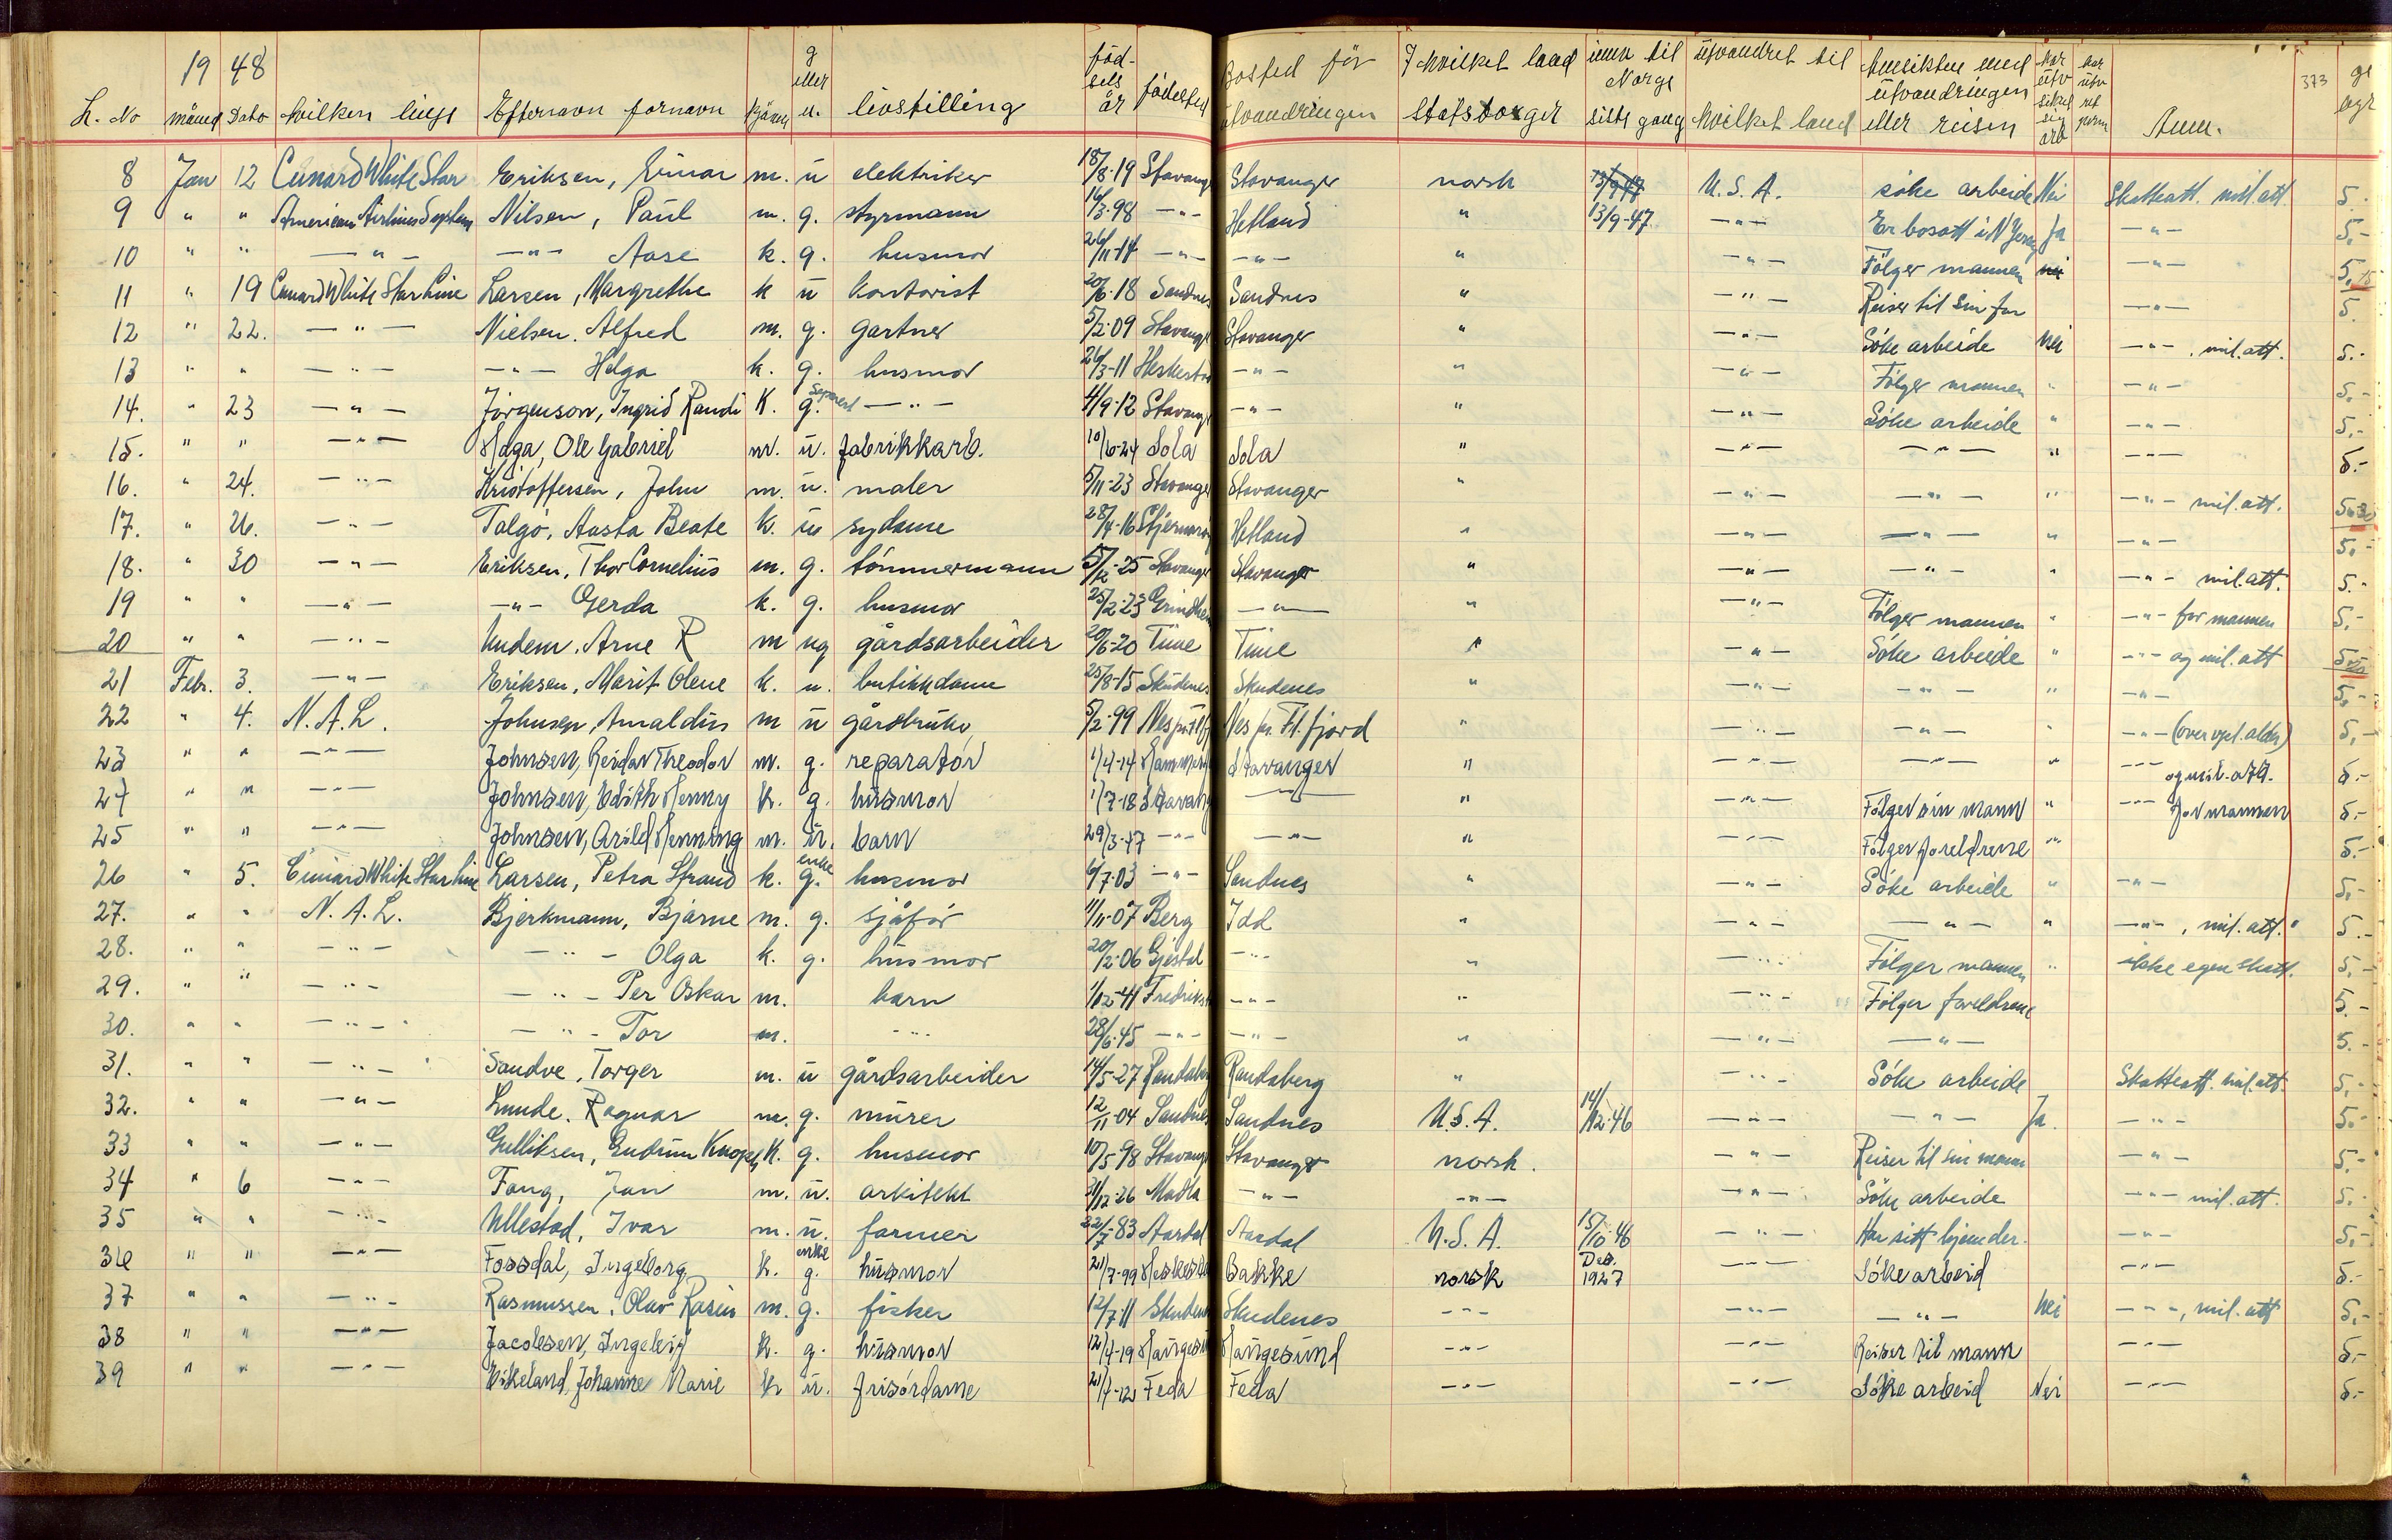 19 48
L. No måned Dato hvilken linje Efternavn fornavn kjönn g eller u. livsstilling född- sels år födested Bosted för utvandringen I hvilket land statsborger innv til Norge siste gang utvandret til hvilket land hensikten med utvandringen eller reisen har utv sikret sig arb har utv ret perm Anm. 373 ge byr
8 Jan 12 Cunard White Star Eriksen, Einar m. u elektriker 18/8-19 Stavanger Stavanger norsk 13/9 47 U.S.A. söke arbeide Nei Skatteatt. mil. att. 5.
9 " " American Airlines System Nilsen, Paul m. g. styrmann 16/3-98 -"- Hetland " 13/9-47 -"- Er bosatt i N Ja -"- 5,-
10 " " -"- -"- Aase k. g. husmor 26/11-14 -"- -"- " -"- Fölger mannen nei -"- 5,
11 " 19 Cunard White Star Line Larsen, Margrethe k u kontorist 20/6-18 Sandnes Sandnes " -"- Reiser til sin far -"- 5.
12 " 22. -"- Nielsen. Alfred m. g. gartner 5/2-09 Stavanger Stavanger " -"- Söke arbeide Nei -"-, mil. att. 5.-
13 " " -"- -"- Helga k. g. husmor 26/3-11 Heskestad -"- " -"- Fölger mannen " -"- 5.-
14. " 23 -"- Jörgenson, Ingrid Randi K. g. separert -"- 4/9-12 Stavanger -"- " -"- Söke arbeide " -"- 5,-
15. " " -"- Haga, Ole Gabriel m. u. fabrikkarb. 10/6-24 Sola Sola " -"- -"- " -"- 5.-
16. " 24. -"- Kristoffersen, John m. u. maler 5/11-23 Stavanger Stavanger " -"- -"- " -"- mil. att.
17. " 26. -"- Talgö, Aasta Beate k. u sydame 28/4-16 Hetland " -"- -"- " -"- 5,-
18. " 30 -"- Eriksen, Thor Cornelius m. g. tömmermann 5/12-25 Stavanger Stavanger " -"- -"- " -"- mil. att. 5.-
19 " " -"- -"- Gerda k. g. husmor 25/2-23 Grindheim -"- " -"- Fölger mannen " -"- for mannen 5,-
20 " " -"- Undem. Arne R m ug gårdsarbeider 20/6-20 Time Time " -"- Söke arbeide " -"- og mil. att
21 Febr. 3. -"- Eriksen, Marit Olene k. u. butikkdame 25/8-15 Skudenes Skudenes " -"- -"- " -"- 5,-
22 " 4. N.A.L. Johnsen, Arnaldus m u gårdbruker 5/2-99 Nes pr. Fl.fj Nes pr. Fl. fjord " -"- -"- " -"- (over vpl. alder) 5,-
23 " " -"- Johnsen, Reidar Theodor m. g. reparatör 1/4-14 Stavanger " -"- -"- " -"- og mil. att. 5.-
24 " " -"- Johnsen, Edith Henny k. g. husmor 1/7-18 Stavang -"- " -"- Fölger sin mann " -"- for mannen 5.-
25 " " -"- Johnsen, Arild Henning m. u. barn 29/3-47 -"- -"- " -"- Fölger foreldrene " 5.-
26 " 5. Cunard White Star Line Larsen, Petra Strand k. enke g. husmor 6/7-03 -"- Sandnes " -"- Söke arbeide " -"- 5,-
27. " " N.A.L. Bjerkmann, Bjarne m. g. sjåför 11/11-07 Berg Idd " -"- -"- " -"-, mil. att. 5.-
28. " " -"- -"- Olga k. g. husmor 20/2-06 Gjestal -"- " -"- Fölger mannen " ikke egen skatt. 5,-
29. " " -"- -"- Per Oskar m. barn 1/12-41 Fredrikst -"- " -"- Fölger foreldrene 5.-
30. " " -"- -"- Tor m. -"- 28/6-45 -"- -"- " -"- -"- 5.-
31. " " -"- Sandve, Torger m. u gårdsarbeider 14/5-27 Randaberg Randaberg " -"- Söke arbeide Skatteatt. mil. att. 5,-
32. " " -"- Lunde. Ragnar m. g. murer 12/11-04 Sandnes Sandnes U.S.A. 14/12-46 -"- -"- Ja. -"- 5.-
33 " " -"- Gulliksen, Gudrun Knoph K. g. husmor 10/5-98 Stavanger Stavanger norsk. -"- Reiser til sin mann -"- 5,-
34 " 6 -"- Fang, Jan m. u. arkitekt 31/12-26 Madla -"- -"- -"- Söke arbeide -"- mil. att. 5.-
35 " " -"- Ullestad, Ivar m. u. farmer 22/7-83 Aardal Aardal U.S.A. 15/10-46 -"- Har sitt hjem der. -"- 5,-
36 " " -"- Fossdal, Ingeborg k. enke g. husmor 21/7-99 Heskestad Bakke norsk Des. 1927 -"- Söke arbeid -"- 5.-
37 " " -"- Rasmussen, Olav Rasin m. g. fisker 12/7-11 Skudenes Skudenes -"- -"- -"- nei -"-, mil. att 5,-
38 " " -"- Jacobsen, Ingeleif k. g. husmor 12/4-19 Haugesund Haugesund -"- -"- Reiser til mann -"- 5.-
39 " " -"- Eikeland, Johanne Marie k u. frisördame 21/4-12 Feda Feda -"- -"- Söke arbeid Nei -"- 5.-